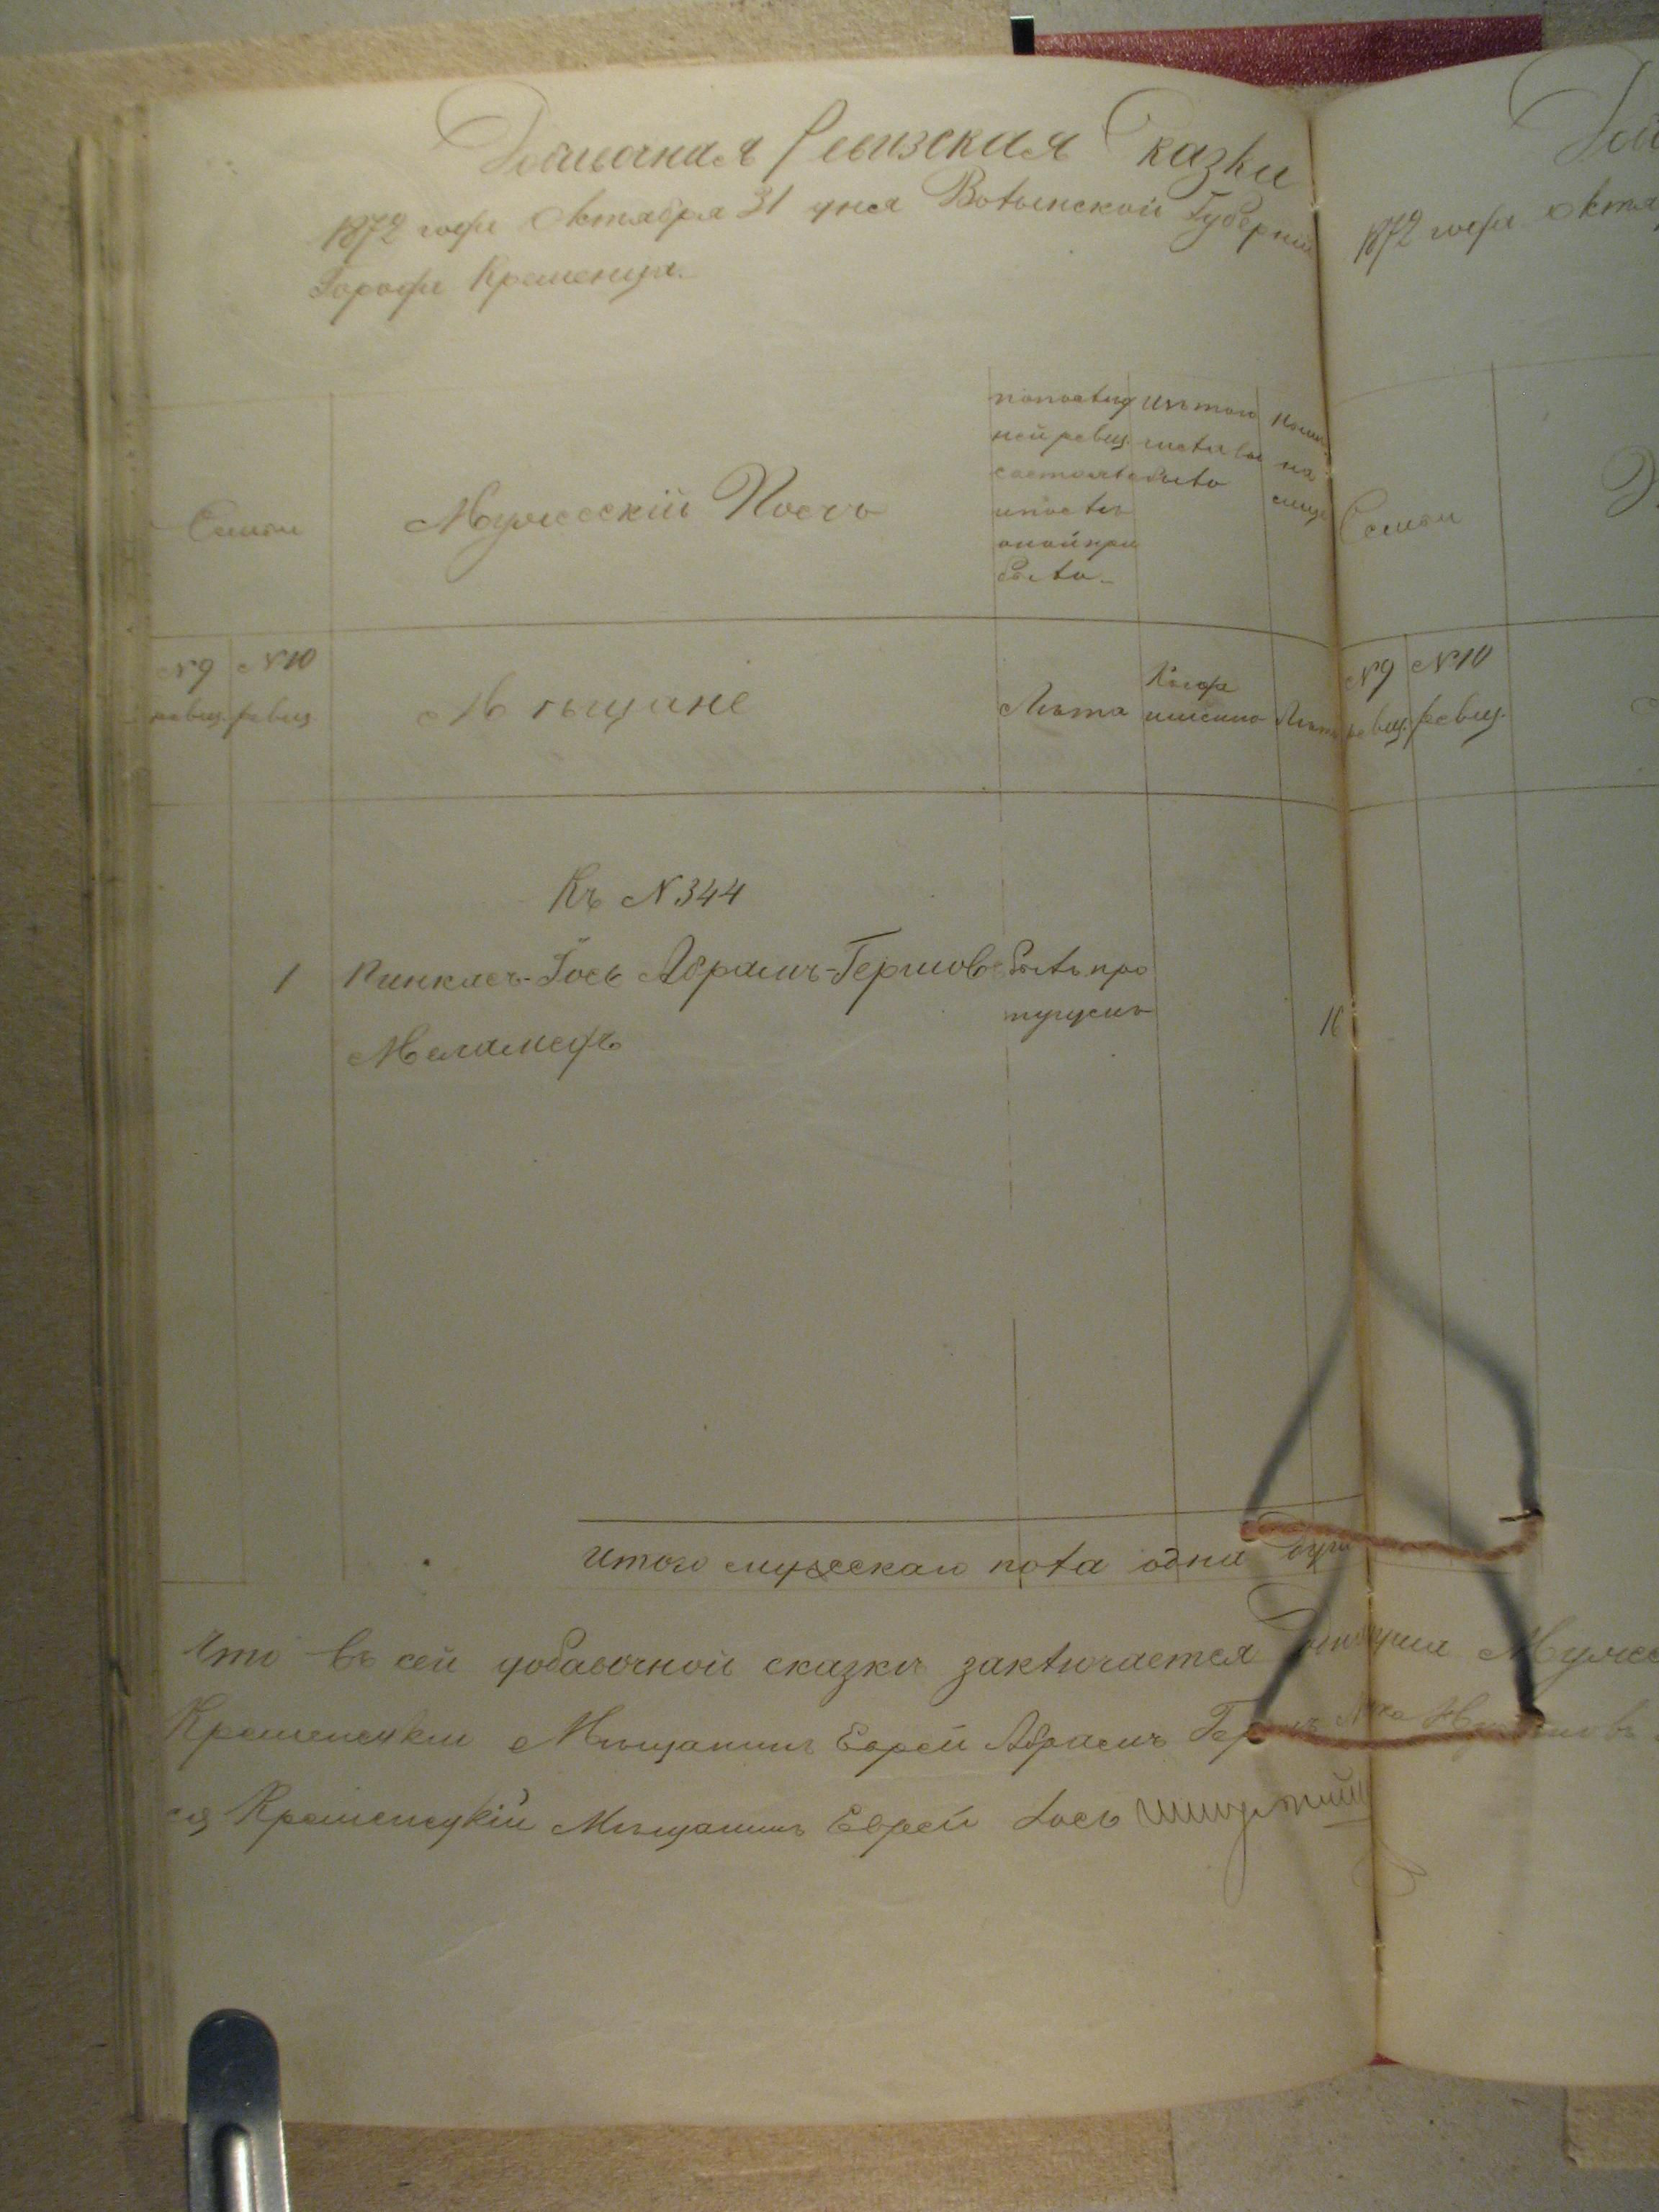 Добавочная Ревизская Сказка
1872 года Октября 31 дня Волынской Губерніи
Города Кременца.
Семьи
Мужескій Полъ
по послѣд
ней ревиз.
состояло
и послѣ
оной при
было.
Изъ того
числа вы
было
Нынѣ
на
лицо
№ 9
ревиз.
№ 10
ревиз.
Мѣщане
Лѣта
Когда
именно
Лѣта
Къ № 344
1 Пинкасъ-Іось Абрамъ-Гершовъ
Меламедъ
былъ про
пущенъ
16
Итого мужескаго пола одна душа
Что въ сей добавочной сказкѣ заключается
Кременецкій Мѣщанинъ Еврей Абрамъ
ся Кременецкій Мѣщанинъ Еврей Іось
1872 года Октя
Семьи
№ 9
ревиз.
№ 10
ревиз.